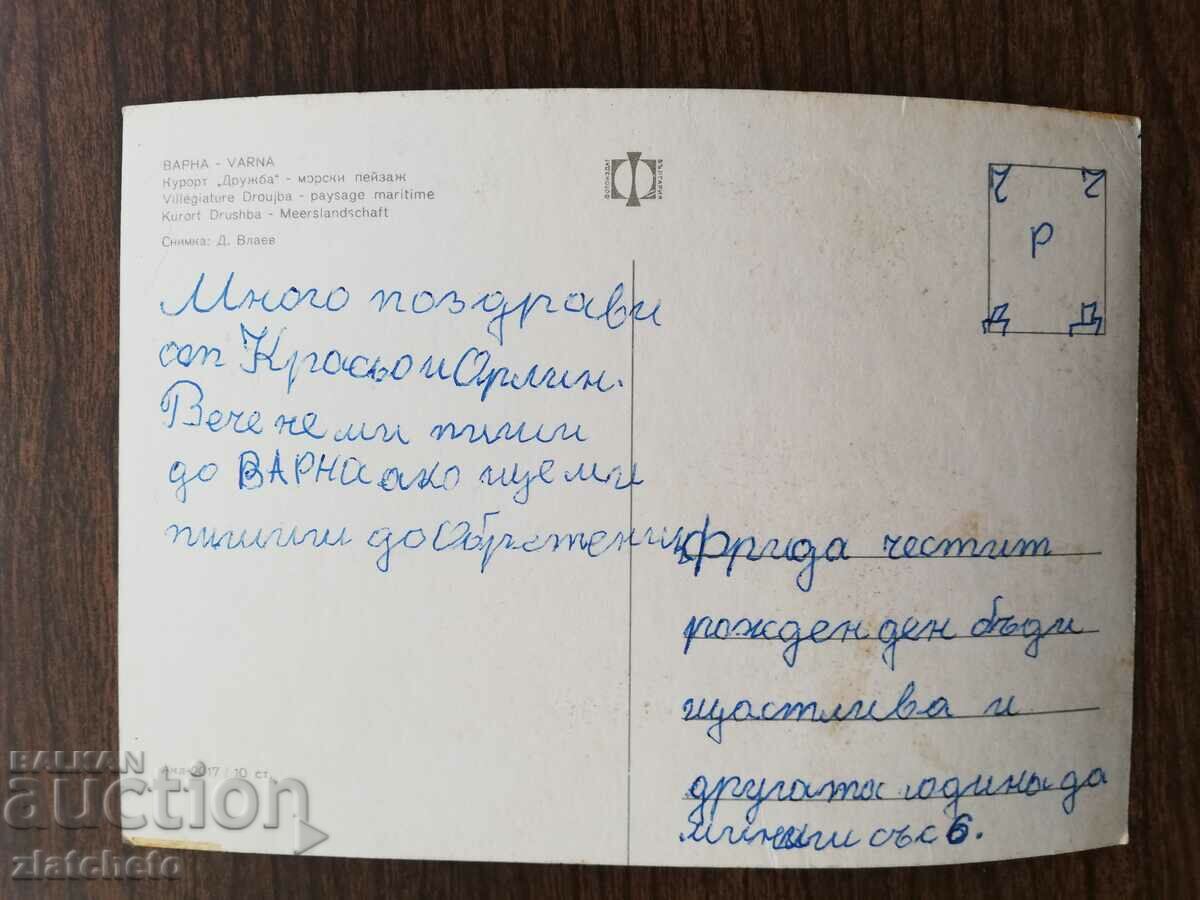 ВАРНА - VARNA
Курорт „Дружба“ - морски пейзаж
Villégiature Droujba - paysage maritime
Kurort Drushba - Meerslandschaft
Снимка: Д. Влаев
ФОТОИЗДАТ БЪЛГАРИЯ
Ч Ч
Р
Д Д
Много поздрави
от Красьо и Орлин.
Вече не ми пиши
до ВАРНА ако ще ми
пишиш до Обретеник
Фрида честит
рожден ден бъди
щастлива и
другата година да
минеш със 6.
Акл-2017 / 10 ст.
BALKAN
auction
zlatcheto